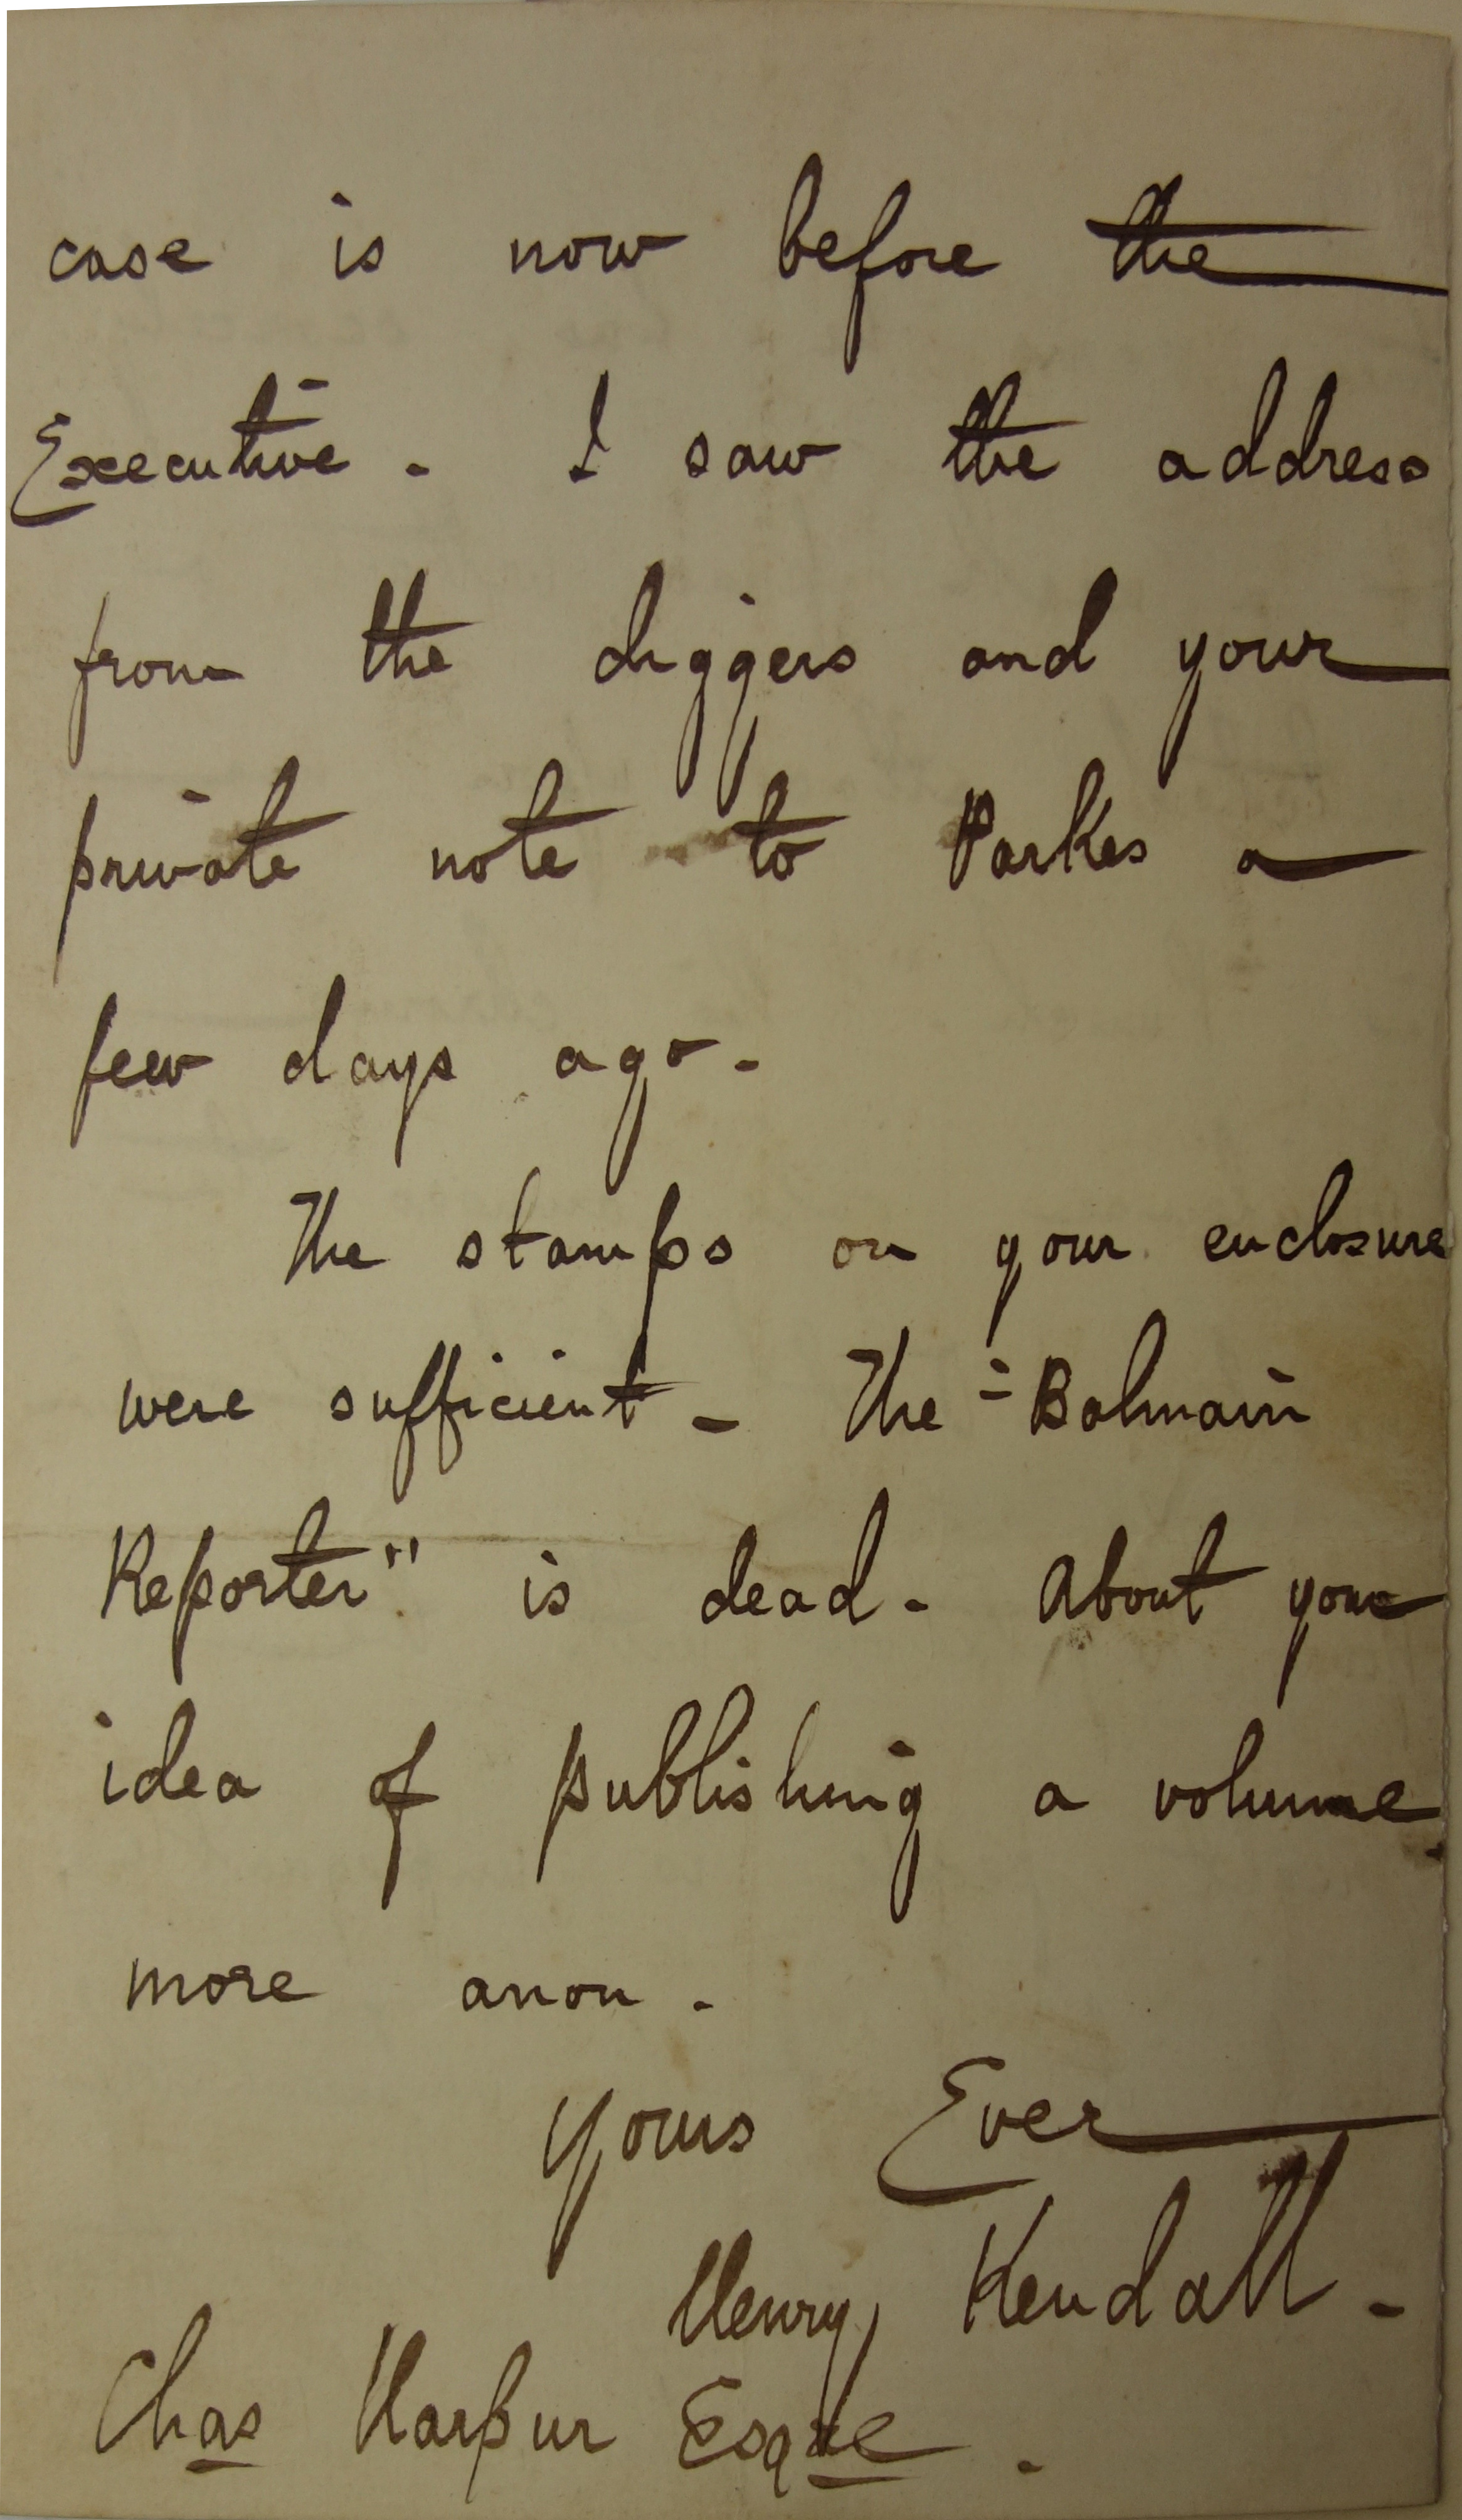 case is now before the
Executive. I saw the address
from the diggers and your
private note to Parkes a
few days ago.
The stamps on your enclosure
were sufficient. The "Balmain
Reporter" is dead. About your
idea of publishing a volume
more anon.
Yours Ever
Henry Kendall.
Chas Harpur Esqre.